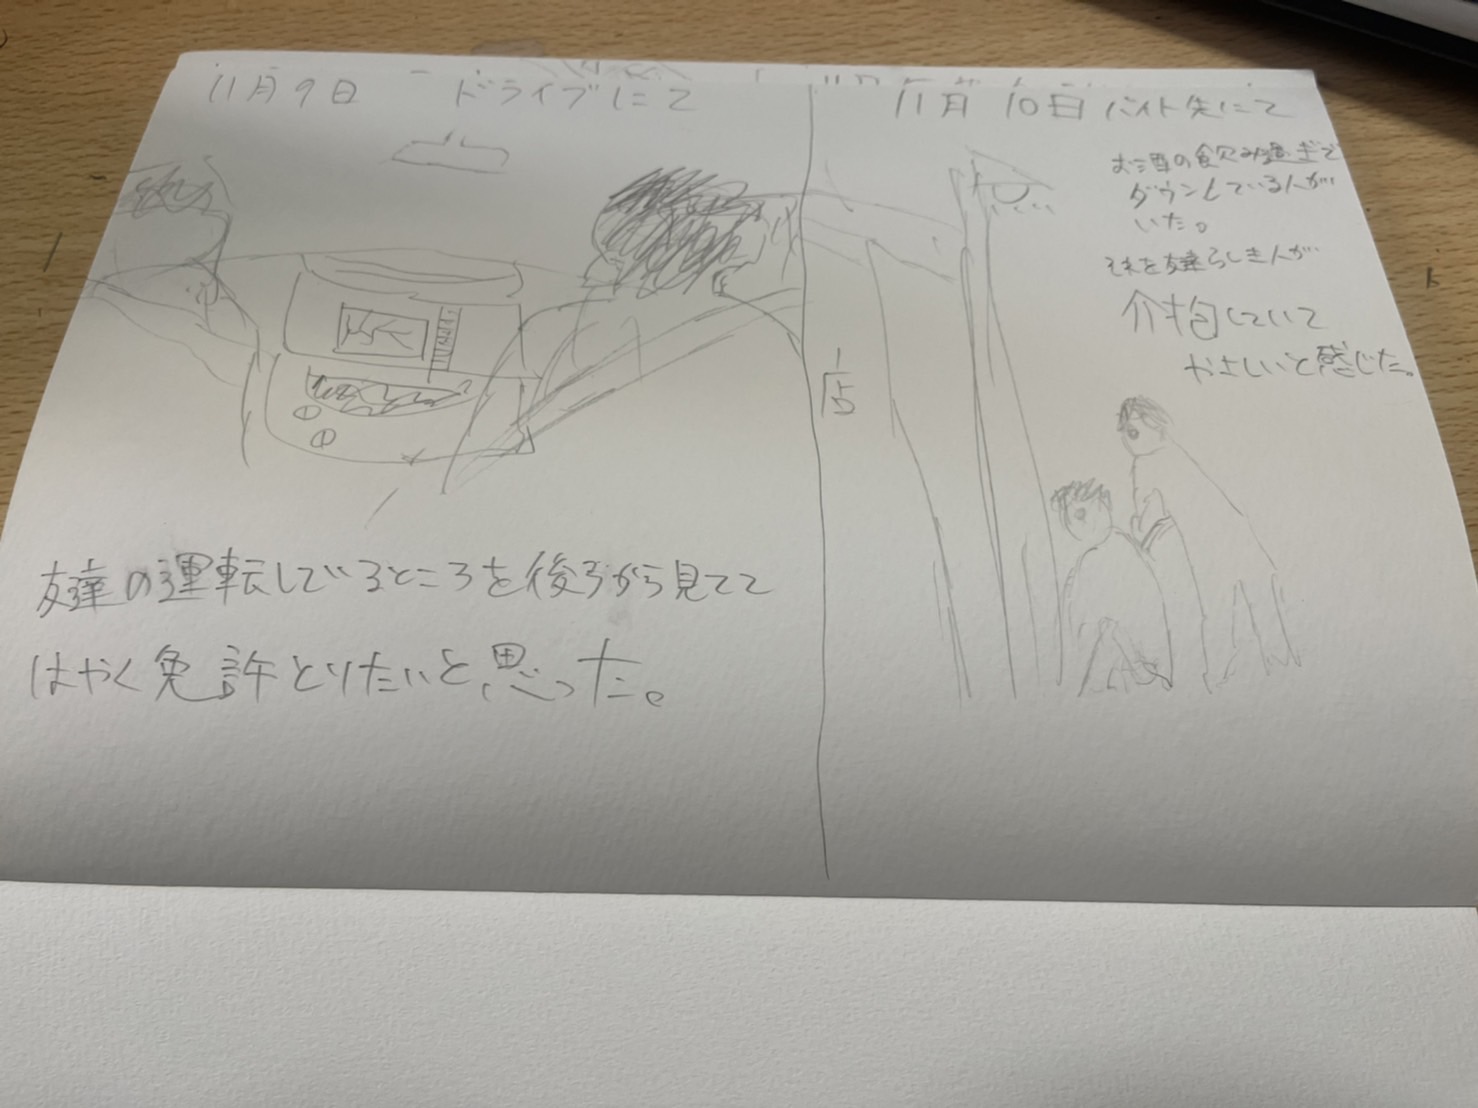 11月9日 ドライブにて
友達の運転しているところを後ろから見てて
はやく免許とりたいと思った。
11月10日 バイト先にて
お酒の飲み過ぎで
ダウンしている人が
いた。
それを友達らしき人が
介抱していて
やさしいと感じた。